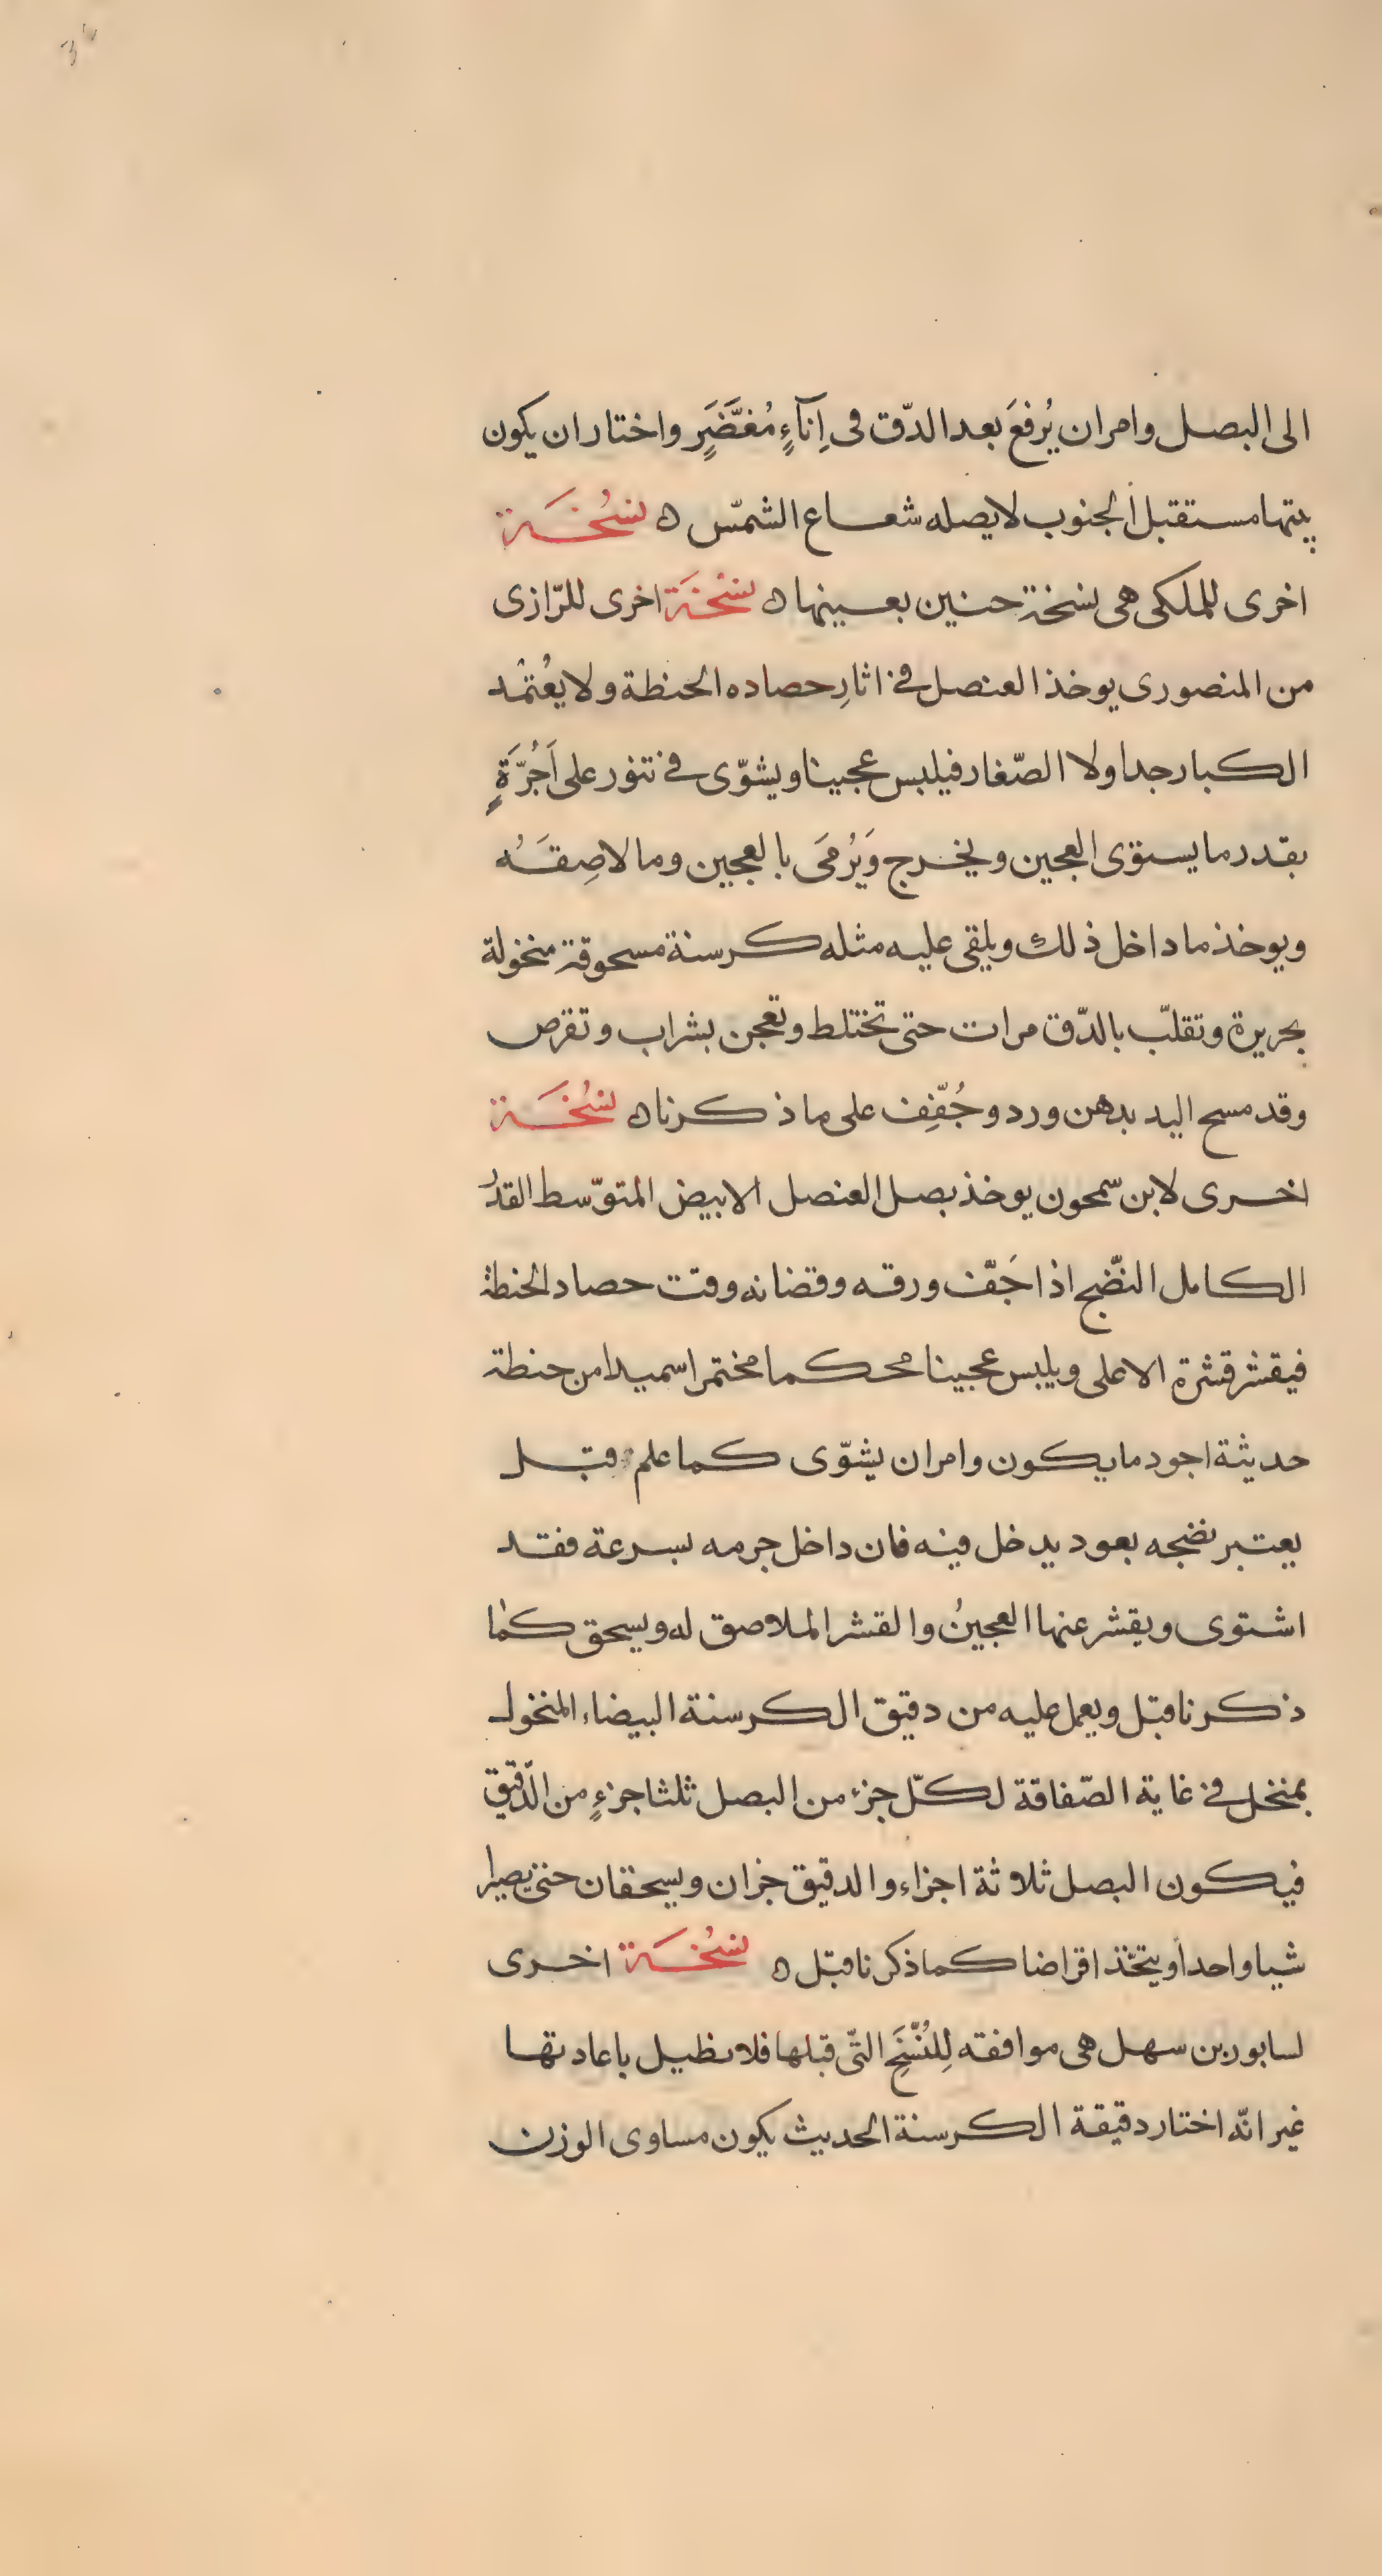 الى البصل وامر ان يُرفعَ بعد الدّق فى اِنآءٍ مُغضَّرٍ واختار ان يكون
بيتها مستقبل الجنوب لا يصله شعاع الشمس ه نسُخَة
اخرى للملكى هى نسخة حنين بعينها ه نسُخَة اخرى للرّازى
من المنصورى يوخذ العنصل فى اثارِ حصاده الحنطة ولا يعُتمد
الكبار جدا ولا الصّغار فيلبس عجينا ويشوّى فى تنور على اَجُرَّةٍ
بقدر ما يستوى العجين ويخرج وَيُرمَى بالعجين وما لاصِقَهُ
ويوخذ ما داخل ذلك ويلقى عليه مثله كرسنة مسحوقة منخولة
بحريرة وتقلبّ بالدّق مرات حتى تختلط وتعجن بشراب وتقرص
وقد مسح اليد بدهن ورد وجُفّفِ على ما ذكرنا ه نسُخَة
اخرى لابن سمحون يوخذ بصل العنصل الابيض المتوّسط القدر
الكامل النضّج اذا جَفّ ورقه وقضانه وقت حصاد الحنطة
فيقشر قشرة الاعلى ويلبس عجينا محكما مختمرا سميدا من حنطة
حديثة اجود ما يكون وامر ان يشوّى كما علم قبل
يعتبر نضجه بعود يدخل فيه فان داخل جرمه بسرعة فقد
اشتوى ويقشر عنها العجينُ والقشر الملاصق له ويسحق كما
ذكرنا قبل ويعمل عليه من دقيق الكرسنة البيضاء المنخول
بمنخل فى غاية الصّفاقة لكلّ جزء من البصل ثلثا جزءٍ من الدّقيق
فيكون البصل ثلاثة اجزاء والدقيق جزان ويسحقان حتى يصيرا
شيا واحداً ويتخّذ اقراضا كما ذكرنا قبل ه نسُخَة اخرى
لسابور بن سهل هى موافقه لِلنُسَّخِ التّى قبلها فلا نطيل باعادتها
غير انّه اختار دقيقة الكرسنة الحديث يكون مساوى الوزن